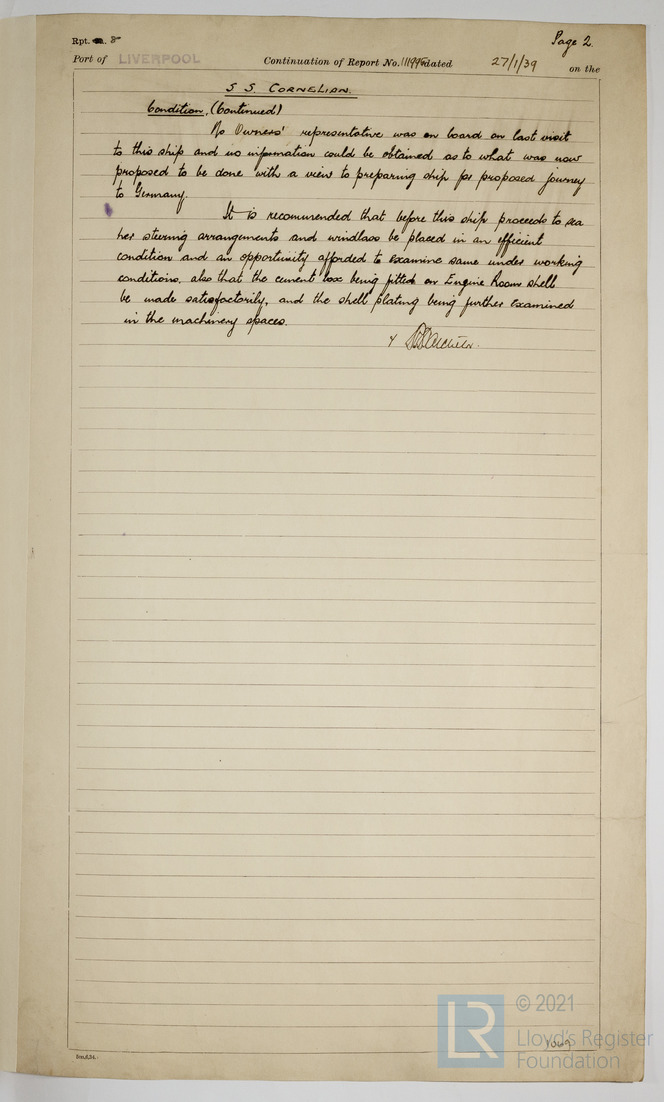 Rpt. 8
Page 2.
Port of LIVERPOOL Continuation of Report No. 111995 dated 27/1/39 on the
S S. CORNELIAN.
Condition, (Continued)
No Owners' representative was on board on last visit
to this ship and no information could be obtained as to what was now
proposed to be done with a view to preparing ship for proposed journey
to Germany.
It is recommended that before this ship proceeds to sea
her steering arrangements and windlass be placed in an efficient
condition and an opportunity afforded to examine same under working
conditions, also that the cement box being fitted on Engine Room shell
be made satisfactorily, and the shell plating being further examined
in the machinery spaces.
© 2021
LR
Lloyd's Register
Foundation